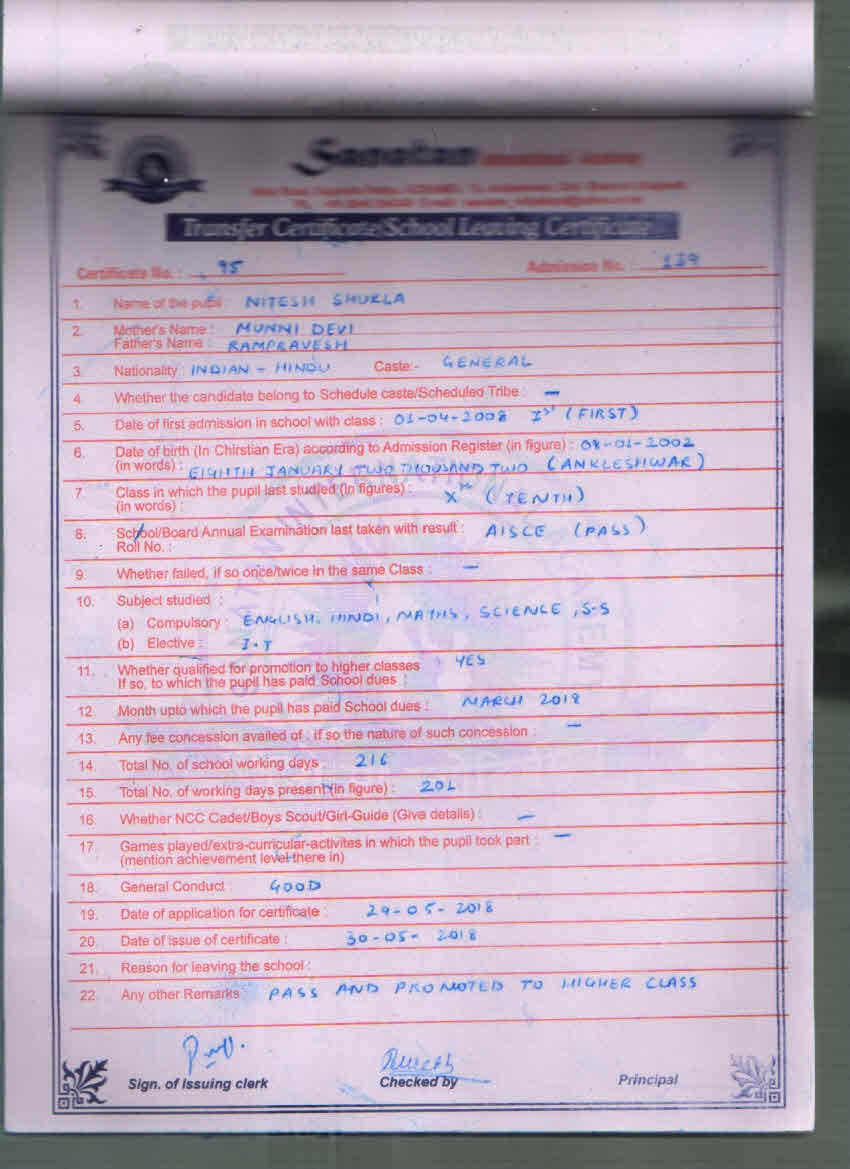 Sanatan
Transfer Certificate/School Leaving Certificate
Certificate No. : 95 Admission No. : 139
1. Name of the pupil : NITESH SHUKLA
2. Mother's Name : MUNNI DEVI
Father's Name : RAMPRAVESH
3. Nationality : INDIAN - HINDU Caste:- GENERAL
4. Whether the candidate belong to Schedule caste/Scheduled Tribe : —
5. Date of first admission in school with class : 01-04-2008 Ist (FIRST)
6. Date of birth (In Chirstian Era) according to Admission Register (in figure) : 08-01-2002
(in words) : EIGHTH JANUARY TWO THOUSAND TWO (ANKLESHWAR)
7. Class in which the pupil last studied (in figures) : Xth (TENTH)
(in words) :
8. School/Board Annual Examination last taken with result : AISCE (PASS)
Roll No. :
9. Whether failed, if so once/twice in the same Class : —
10. Subject studied :
(a) Compulsory : ENGLISH, HINDI, MATHS, SCIENCE, S.S
(b) Elective : I.T
11. Whether qualified for promotion to higher classes YES
If so, to which the pupil has paid School dues :
12. Month upto which the pupil has paid School dues : MARCH 2018
13. Any fee concession availed of : if so the nature of such concession : —
14. Total No. of school working days : 216
15. Total No. of working days present (in figure) : 201
16. Whether NCC Cadet/Boys Scout/Girl-Guide (Give details) : —
17. Games played/extra-curricular-activites in which the pupil took part : —
(mention achievement level there in)
18. General Conduct : GOOD
19. Date of application for certificate : 29-05-2018
20. Date of issue of certificate : 30-05-2018
21. Reason for leaving the school :
22. Any other Remarks : PASS AND PROMOTED TO HIGHER CLASS
Sign. of Issuing clerk Checked by Principal